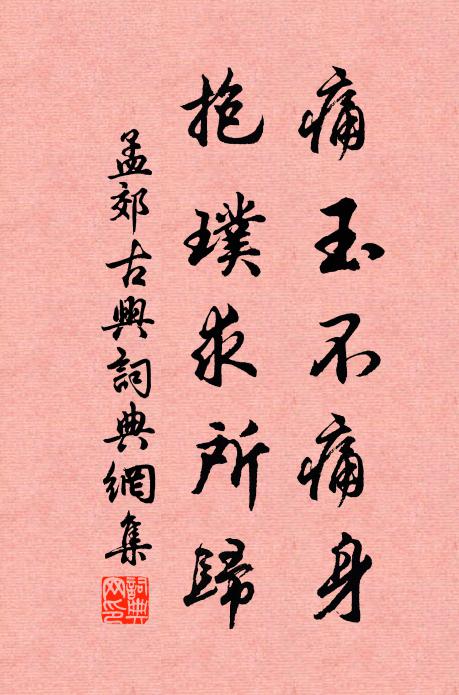 痛玉不痛身
抱璞求所歸
孟郊古興詞典網集
詞典網印